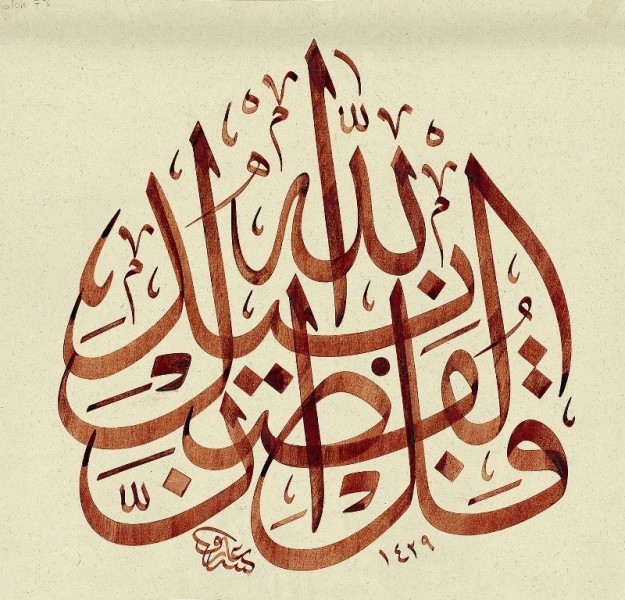 قُلْ إِنَّ الْفَضْلَ بِيَدِ اللّٰهِ
١٤٢٩